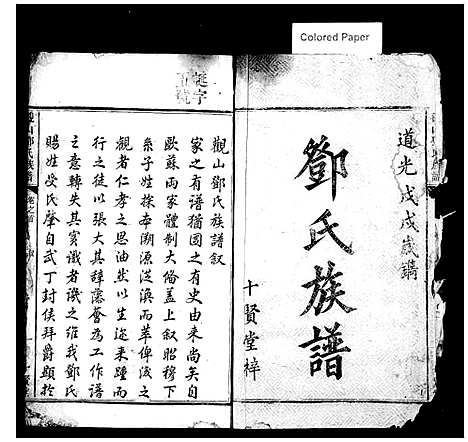 Colored Paper
道光戊戌歲鐫
鄧氏族譜
十賢堂梓
觀山鄧氏族譜叙
家之有譜猶國之有史由來尚矣自
歐蘇兩家體制大備蓋上叙昭穆下
系子姓探本溯源泛濱而萃俾後之
觀者仁孝之思油然以生迩來踵而
行之徒以張大其辭藻薈為工作譜
之意轉失其實識者譏之維我鄧氏
賜姓受氏肇自武丁封侯拜爵顯於